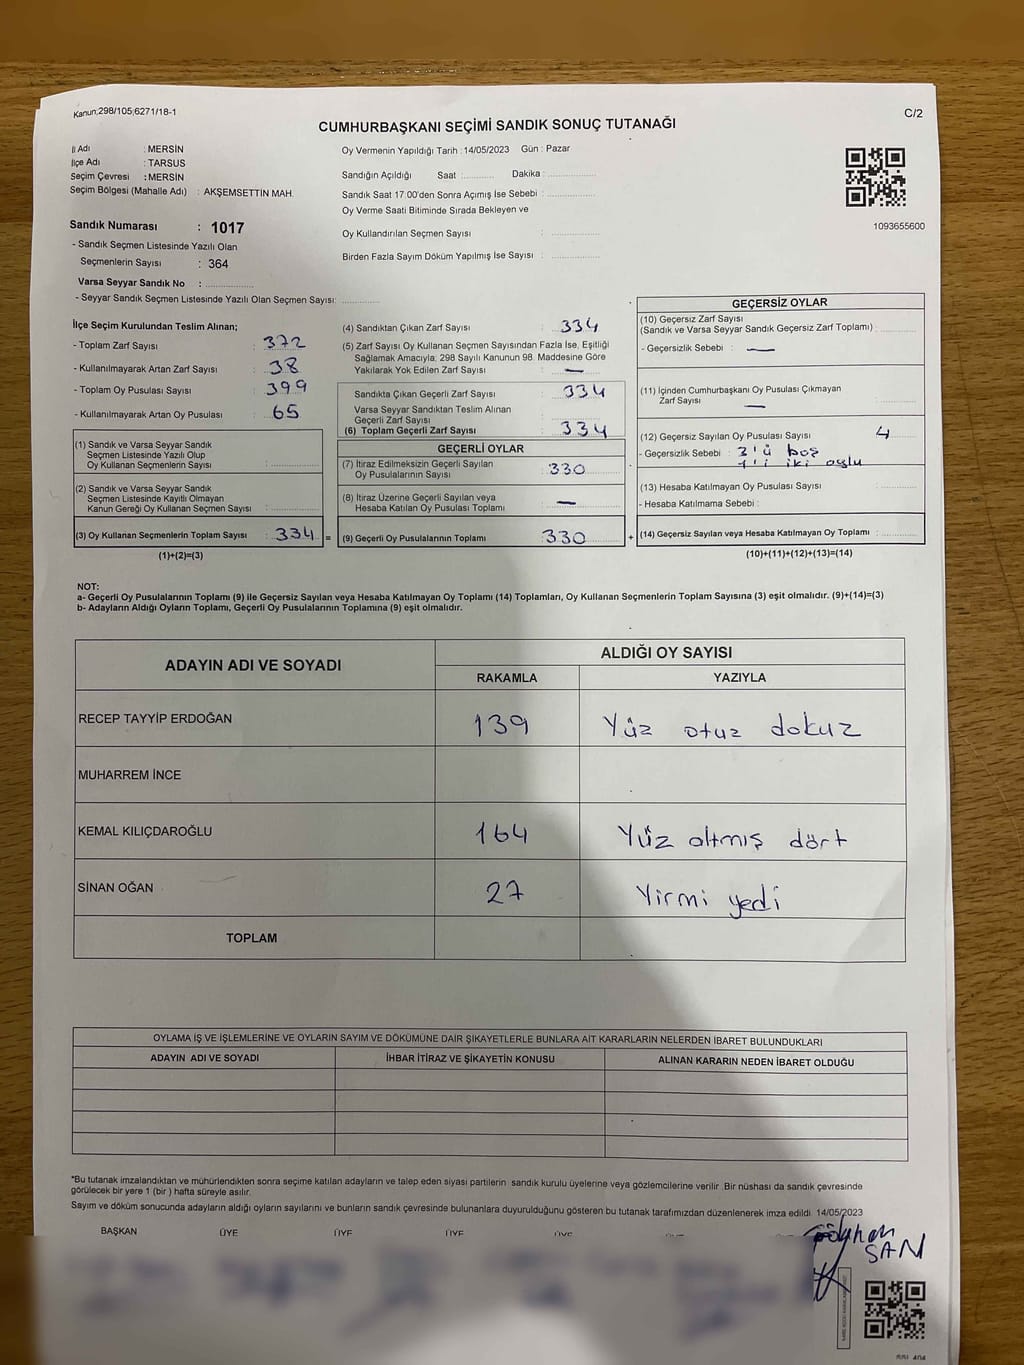 Kanun;298/105;6271/18-1
C/2
CUMHURBAŞKANI SEÇİMİ SANDIK SONUÇ TUTANAĞI
İl Adı : MERSİN
İlçe Adı : TARSUS
Seçim Çevresi : MERSİN
Seçim Bölgesi (Mahalle Adı) : AKŞEMSETTİN MAH.
Oy Vermenin Yapıldığı Tarih :14/05/2023 Gün : Pazar
Sandığın Açıldığı Saat :............ Dakika :................
Sandık Saat 17:00'den Sonra Açımış İse Sebebi :................
Oy Verme Saati Bitiminde Sırada Bekleyen ve
Oy Kullandırılan Seçmen Sayısı :................
Birden Fazla Sayım Döküm Yapılmış İse Sayısı :................
1093655600
Sandık Numarası : 1017
- Sandık Seçmen Listesinde Yazılı Olan
Seçmenlerin Sayısı : 364
Varsa Seyyar Sandık No :................
- Seyyar Sandık Seçmen Listesinde Yazılı Olan Seçmen Sayısı:............
İlçe Seçim Kurulundan Teslim Alınan;
- Toplam Zarf Sayısı : 372
- Kullanılmayarak Artan Zarf Sayısı : 38
- Toplam Oy Pusulası Sayısı : 399
- Kullanılmayarak Artan Oy Pusulası : 65
(1) Sandık ve Varsa Seyyar Sandık
Seçmen Listesinde Yazılı Olup
Oy Kullanan Seçmenlerin Sayısı :................
(2) Sandık ve Varsa Seyyar Sandık
Seçmen Listesinde Kayıtlı Olmayan
Kanun Gereği Oy Kullanan Seçmen Sayısı :................
(3) Oy Kullanan Seçmenlerin Toplam Sayısı : 334 =
(1)+(2)=(3)
(4) Sandıktan Çıkan Zarf Sayısı : 334
(5) Zarf Sayısı Oy Kullanan Seçmen Sayısından Fazla İse, Eşitliği
Sağlamak Amacıyla; 298 Sayılı Kanunun 98. Maddesine Göre
Yakılarak Yok Edilen Zarf Sayısı : —
Sandıkta Çıkan Geçerli Zarf Sayısı : 334
Varsa Seyyar Sandıktan Teslim Alınan
Geçerli Zarf Sayısı
(6) Toplam Geçerli Zarf Sayısı : 334
GEÇERLİ OYLAR
(7) İtiraz Edilmeksizin Geçerli Sayılan
Oy Pusulalarının Sayısı : 330
(8) İtiraz Üzerine Geçerli Sayılan veya
Hesaba Katılan Oy Pusulası Toplamı : —
(9) Geçerli Oy Pusulalarının Toplamı : 330 +
GEÇERSİZ OYLAR
(10) Geçersiz Zarf Sayısı
(Sandık ve Varsa Seyyar Sandık Geçersiz Zarf Toplamı) :
- Geçersizlik Sebebi : —
(11) İçinden Cumhurbaşkanı Oy Pusulası Çıkmayan
Zarf Sayısı : —
(12) Geçersiz Sayılan Oy Pusulası Sayısı : 4
- Geçersizlik Sebebi : 3'ü boş
1'i iki oylu
(13) Hesaba Katılmayan Oy Pusulası Sayısı :
- Hesaba Katılmama Sebebi :
(14) Geçersiz Sayılan veya Hesaba Katılmayan Oy Toplamı :
(10)+(11)+(12)+(13)=(14)
NOT:
a- Geçerli Oy Pusulalarının Toplamı (9) ile Geçersiz Sayılan veya Hesaba Katılmayan Oy Toplamı (14) Toplamları, Oy Kullanan Seçmenlerin Toplam Sayısına (3) eşit olmalıdır. (9)+(14)=(3)
b- Adayların Aldığı Oyların Toplamı, Geçerli Oy Pusulalarının Toplamına (9) eşit olmalıdır.
ADAYIN ADI VE SOYADI ALDIĞI OY SAYISI
RAKAMLA YAZIYLA
RECEP TAYYİP ERDOĞAN 139 Yüz otuz dokuz
MUHARREM İNCE
KEMAL KILIÇDAROĞLU 164 Yüz altmış dört
SİNAN OĞAN 27 Yirmi yedi
TOPLAM
OYLAMA İŞ VE İŞLEMLERİNE VE OYLARIN SAYIM VE DÖKÜMÜNE DAİR ŞİKAYETLERLE BUNLARA AİT KARARLARIN NELERDEN İBARET BULUNDUKLARI
ADAYIN ADI VE SOYADI İHBAR İTİRAZ VE ŞİKAYETİN KONUSU ALINAN KARARIN NEDEN İBARET OLDUĞU
*Bu tutanak imzalandıktan ve mühürlendikten sonra seçime katılan adayların ve talep eden siyasi partilerin sandık kurulu üyelerine veya gözlemcilerine verilir .Bir nüshası da sandık çevresinde
görülecek bir yere 1 (bir ) hafta süreyle asılır.
Sayım ve döküm sonucunda adayların aldığı oyların sayılarını ve bunların sandık çevresinde bulunanlara duyurulduğunu gösteren bu tutanak tarafımızdan düzenlenerek imza edildi. 14/05/2023
BAŞKAN ÜYE ÜYE ÜYE ÜYE
SAN